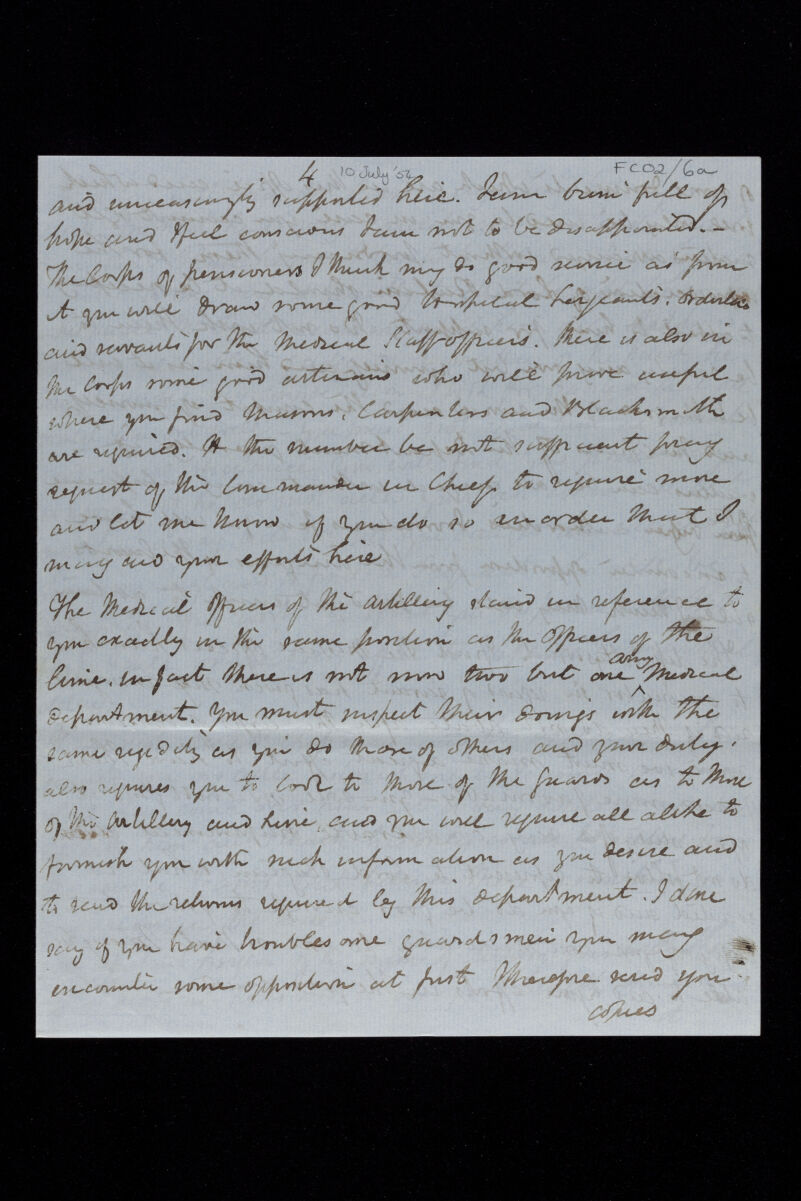 4 10 July '54 FC02/6a
and unceasingly supported here. I am brim full of
hope and feel conscious I am not to be disappointed. -
The Corps of pensioners I think may do good service as from
it you will draw some good Hospital Sergeants, orderlies
and servants for the Medical Staff officers. There is also in
the Corps some good artizans who will prove useful
where you find Masons, Carpenters and Blacksmith
are required. If the number be not sufficient pray
request of the Commander in Chief to require more
and let me know if you do so in order that I
may aid your efforts here
The Medical Officers of the Artillery stand in reference to
you exactly in the same position as the officers of the
line. in fact there is not now two but one army Medical
department. You must inspect their doings with the
same rigidity as you do those of others and your duty.
also requires you to look to those of the Guards as to those
of the Artillery and line, and you will require all alike to
furnish you with such information as you desire and
to send the returns required by this department. I dare
say if you have troublesome guardsmen you may
encounter some opposition at first therefore send you
copies